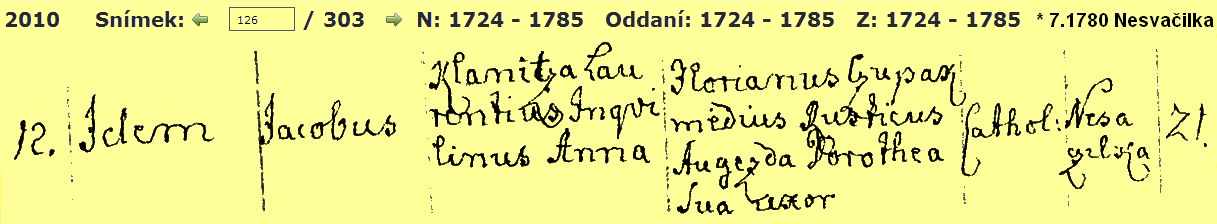 2010 Snímek: 126 / 303 N: 1724 - 1785 Oddaní: 1724 - 1785 Z: 1724 - 1785 * 7.1780 Nesvačilka
12. Idem Jacobus Klanitza Lau
rentius Inqvi
linus Anna
Florianus Czupax
medius Rusticus
Augezda Dorothea
Sua uxor
Cathol: Nesa
21.